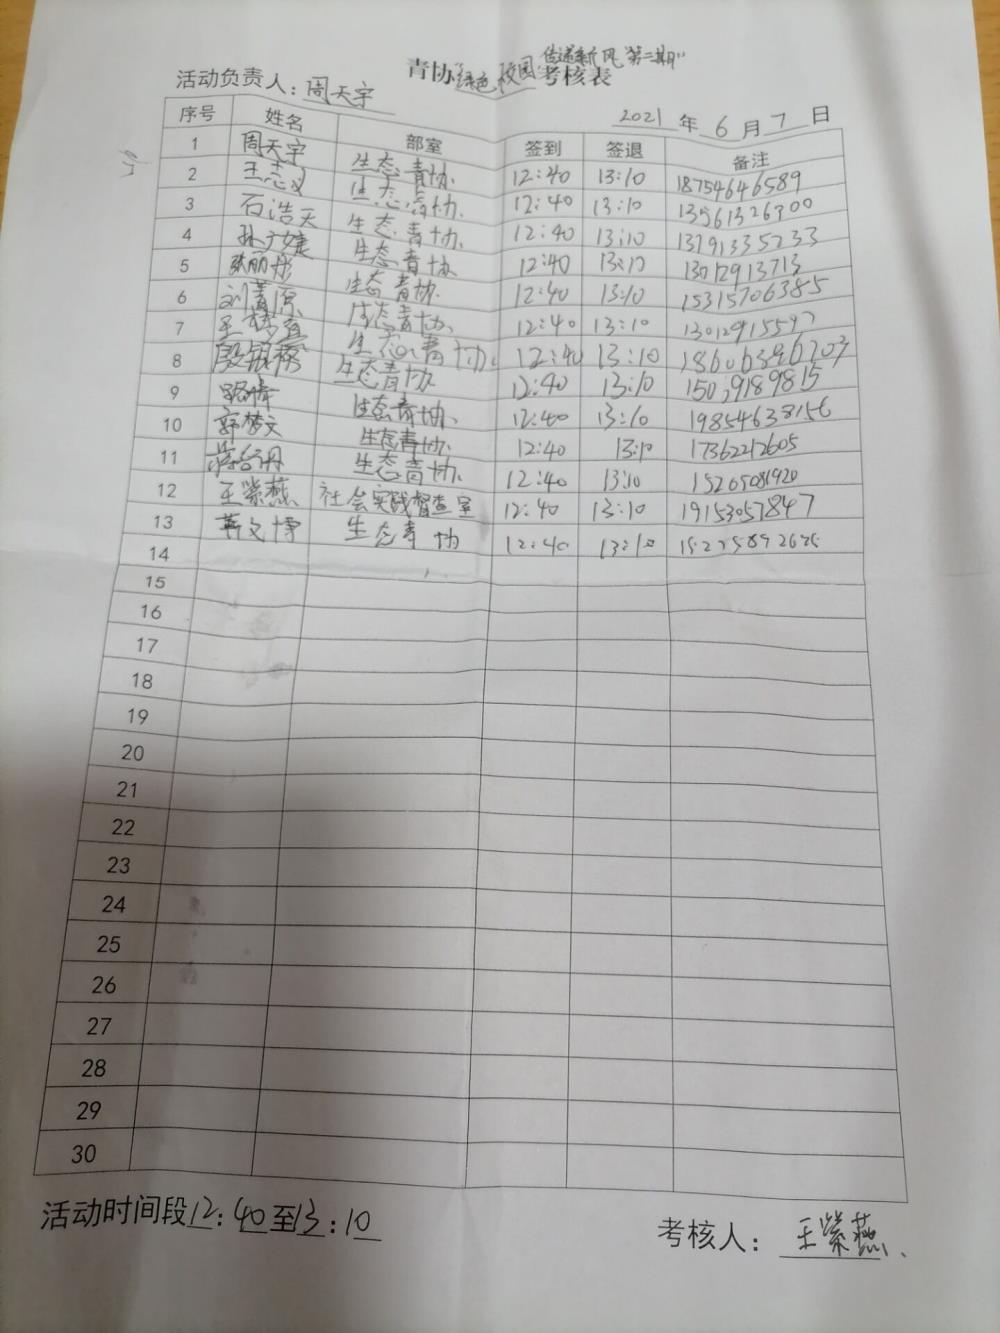 青协“绿色校园 传递新风”第二期” 考核表
活动负责人：周天宇
2021 年 6 月 7 日
序号 姓名 部室 签到 签退 备注
1 周天宇 生态青协 12:40 13:10 18754646589
2 王志义 生态青协 12:40 13:10 13561326300
3 石浩天 生态青协 12:40 13:10 13791335233
4 孙广婕 生态青协 12:40 13:10 13012913713
5 张丽彤 生态青协 12:40 13:10 15315706385
6 刘 源 生态青协 12:40 13:10 13012915597
7 王梦 生态青协 12:40 13:10 18606396703
8 殷 生态青协 12:40 13:10
9 路倩 生态青协 12:40 13:10 19854638156
10 郭梦文 生态青协 12:40 13:10 17362212605
11 丹 生态青协 12:40 13:10 15265081920
12 王紫燕 社会实践督查室 12:40 13:10 19153057847
13 文博 生态青协 12:40 13:10
14
15
16
17
18
19
20
21
22
23
24
25
26
27
28
29
30
活动时间段12:40至13:10
考核人：王紫燕